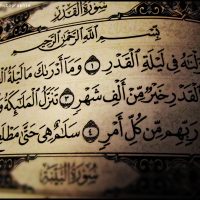 سُورَةُ القَدْرِ
بِسْمِ ٱللَّهِ ٱلرَّحْمَٰنِ ٱلرَّحِيمِ
لْنَٰهُ فِى لَيْلَةِ ٱلْقَدْرِ ١ وَمَآ أَدْرَىٰكَ مَا لَيْلَةُ
ٱلْقَدْرِ خَيْرٌ مِّنْ أَلْفِ شَهْرٍ ٣ تَنَزَّلُ ٱلْمَلَٰٓئِكَةُ
رَبِّهِم مِّن كُلِّ أَمْرٍ ٤ سَلَٰمٌ هِىَ حَتَّىٰ مَطْلَعِ
سُورَةُ البَيِّنَةِ